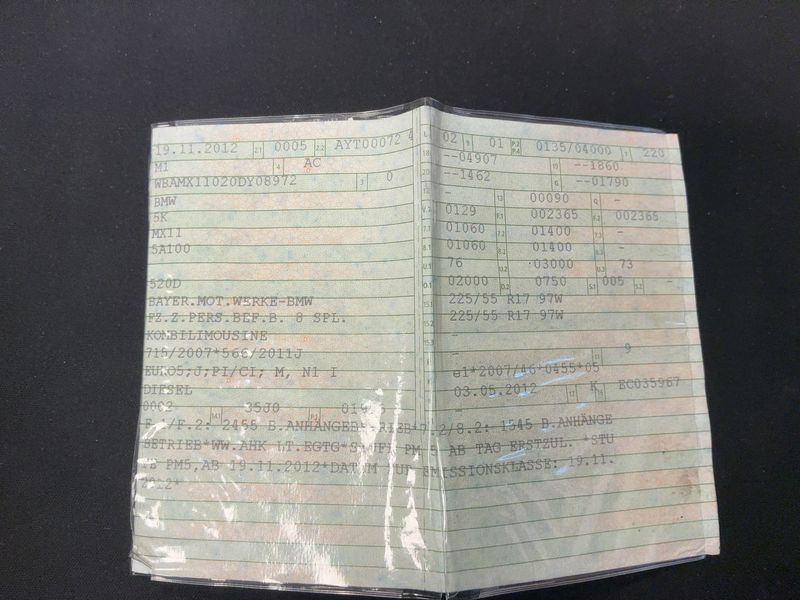 19.11.2012 2.1 0005 2.2 AYT00072 4
M1 4 AC
WBAMX11020DY08972 3 0
BMW
5K
MX11
5A100
520D
BAYER.MOT.WERKE-BMW
FZ.Z.PERS.BEF.B. 8 SPL.
KOMBILIMOUSINE
715/2007*566/2011J
EURO5;J;PI/CI; M, N1 I
DIESEL
0002 14.1 35J0 P.1
L 02 9 01 P.2 P.4 0135/04000 T 220
18 --04907 19 --1860
20 --1462 G --01790
- 13 00090 Q -
V.7 0129 F.1 002365 F.2 002365
7.1 01060 7.2 01400 7.3 -
8.1 01060 8.2 01400 8.3 -
U.1 76 U.2 03000 U.3 73
O.1 02000 O.2 0750 S.1 005 S.2 -
15.1 225/55 R17 97W
15.2 225/55 R17 97W
15.3 -
- 11 9
e1*2007/46*0455*05
03.05.2012 17 K 16 EC035967
-
/F.2: 2455 B.ANHÄNGEBETRIEB* /8.2: 1545 B.ANHÄNGE
BETRIEB*WW.AHK LT.EGTG* PM 5 AB TAG ERSTZUL. *STU
FE PM5,AB 19.11.2012*DATUM ZUR EMISSIONSKLASSE: 19.11.
2012*